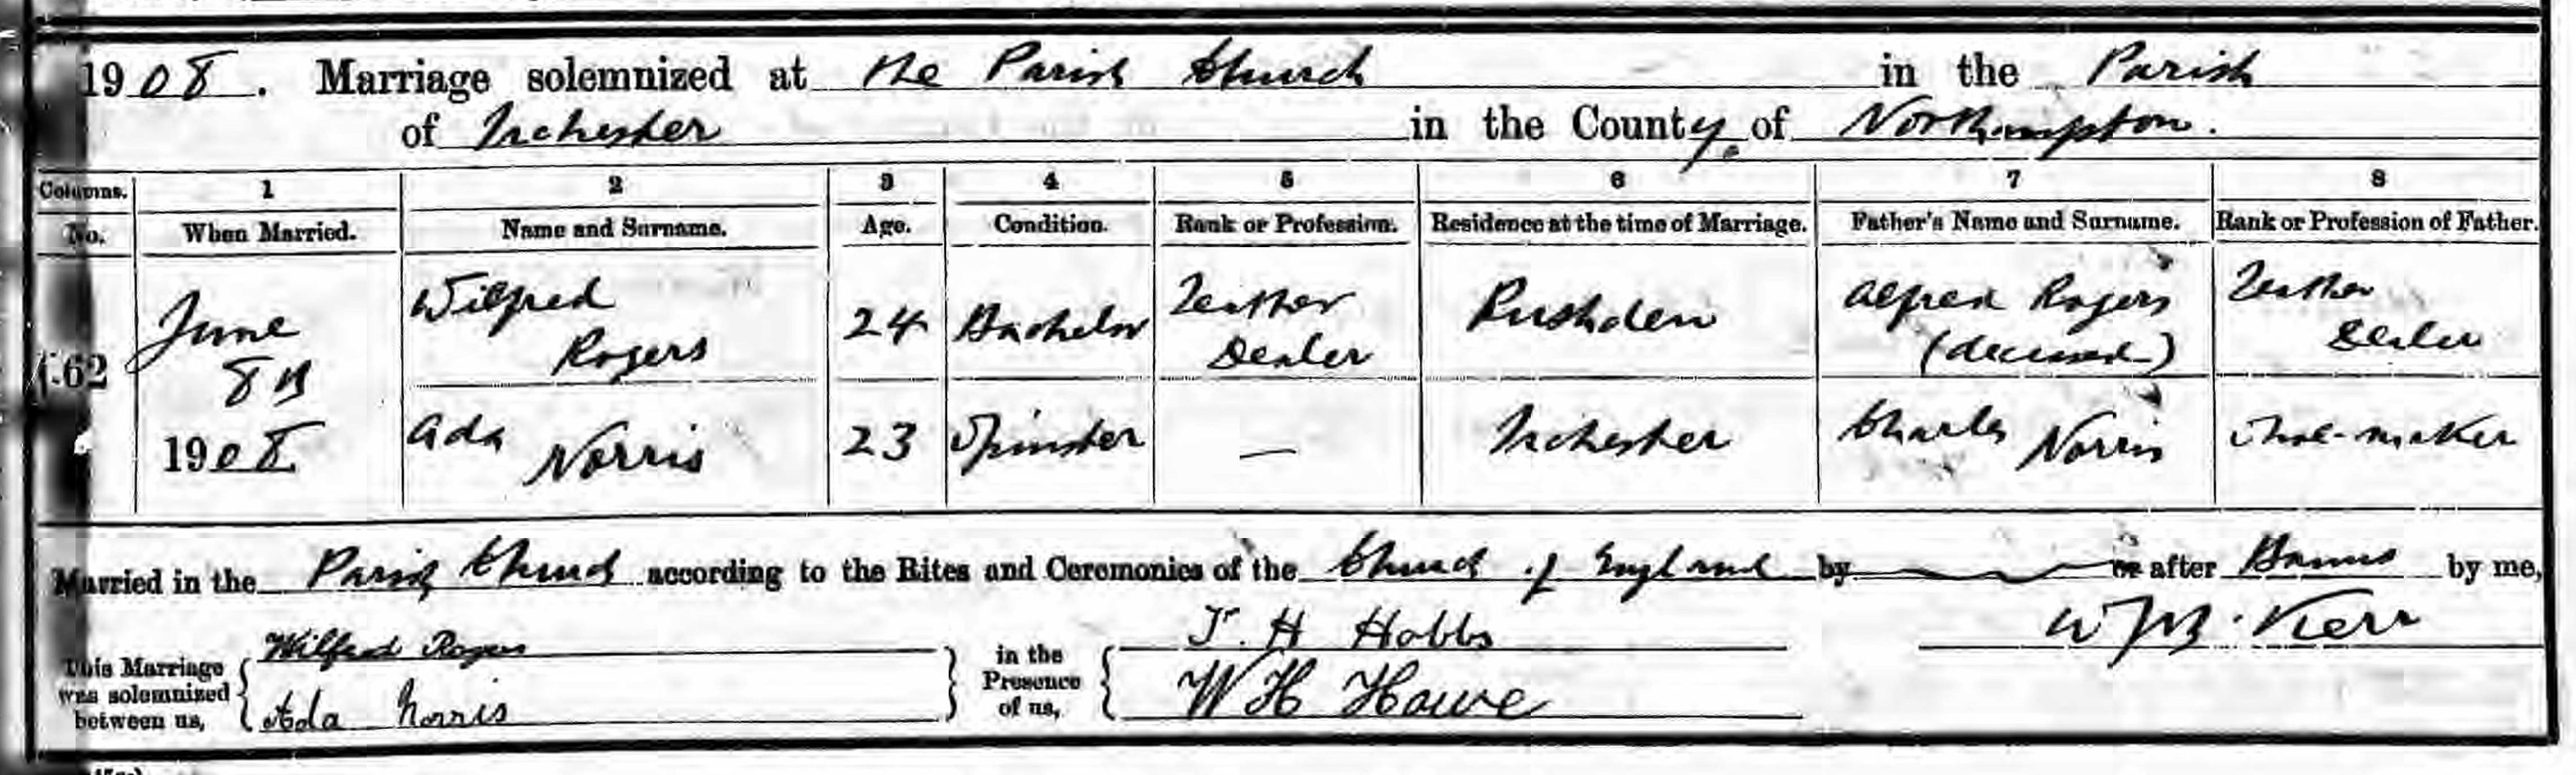 1908. Marriage solemnized at the Parish Church in the Parish
of Irchester in the County of Northampton.
Columns. 1 2 3 4 5 6 7 8
No. When Married. Name and Surname. Age. Condition. Rank or Profession. Residence at the time of Marriage. Father's Name and Surname. Rank or Profession of Father.
462 June 8th 1908 Wilfred Rogers 24 Bachelor Leather Dealer Rushden Alfred Rogers (deceased) Leather Dealer
Ada Norris 23 Spinster — Irchester Charles Norris Shoe-maker
Married in the Parish Church according to the Rites and Ceremonies of the Church of England by or after Banns by me,
This Marriage was solemnized between us, Wilfred Rogers Ada Norris in the Presence of us, T. H Hobbs W H Howe Kerr